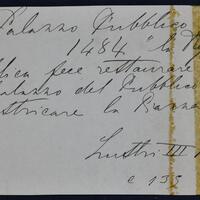 Palazzo Pubblico
1484 "la R
blica fece restaurare
Palazzo del Pubblico
stricare la
Lustri III
c 135